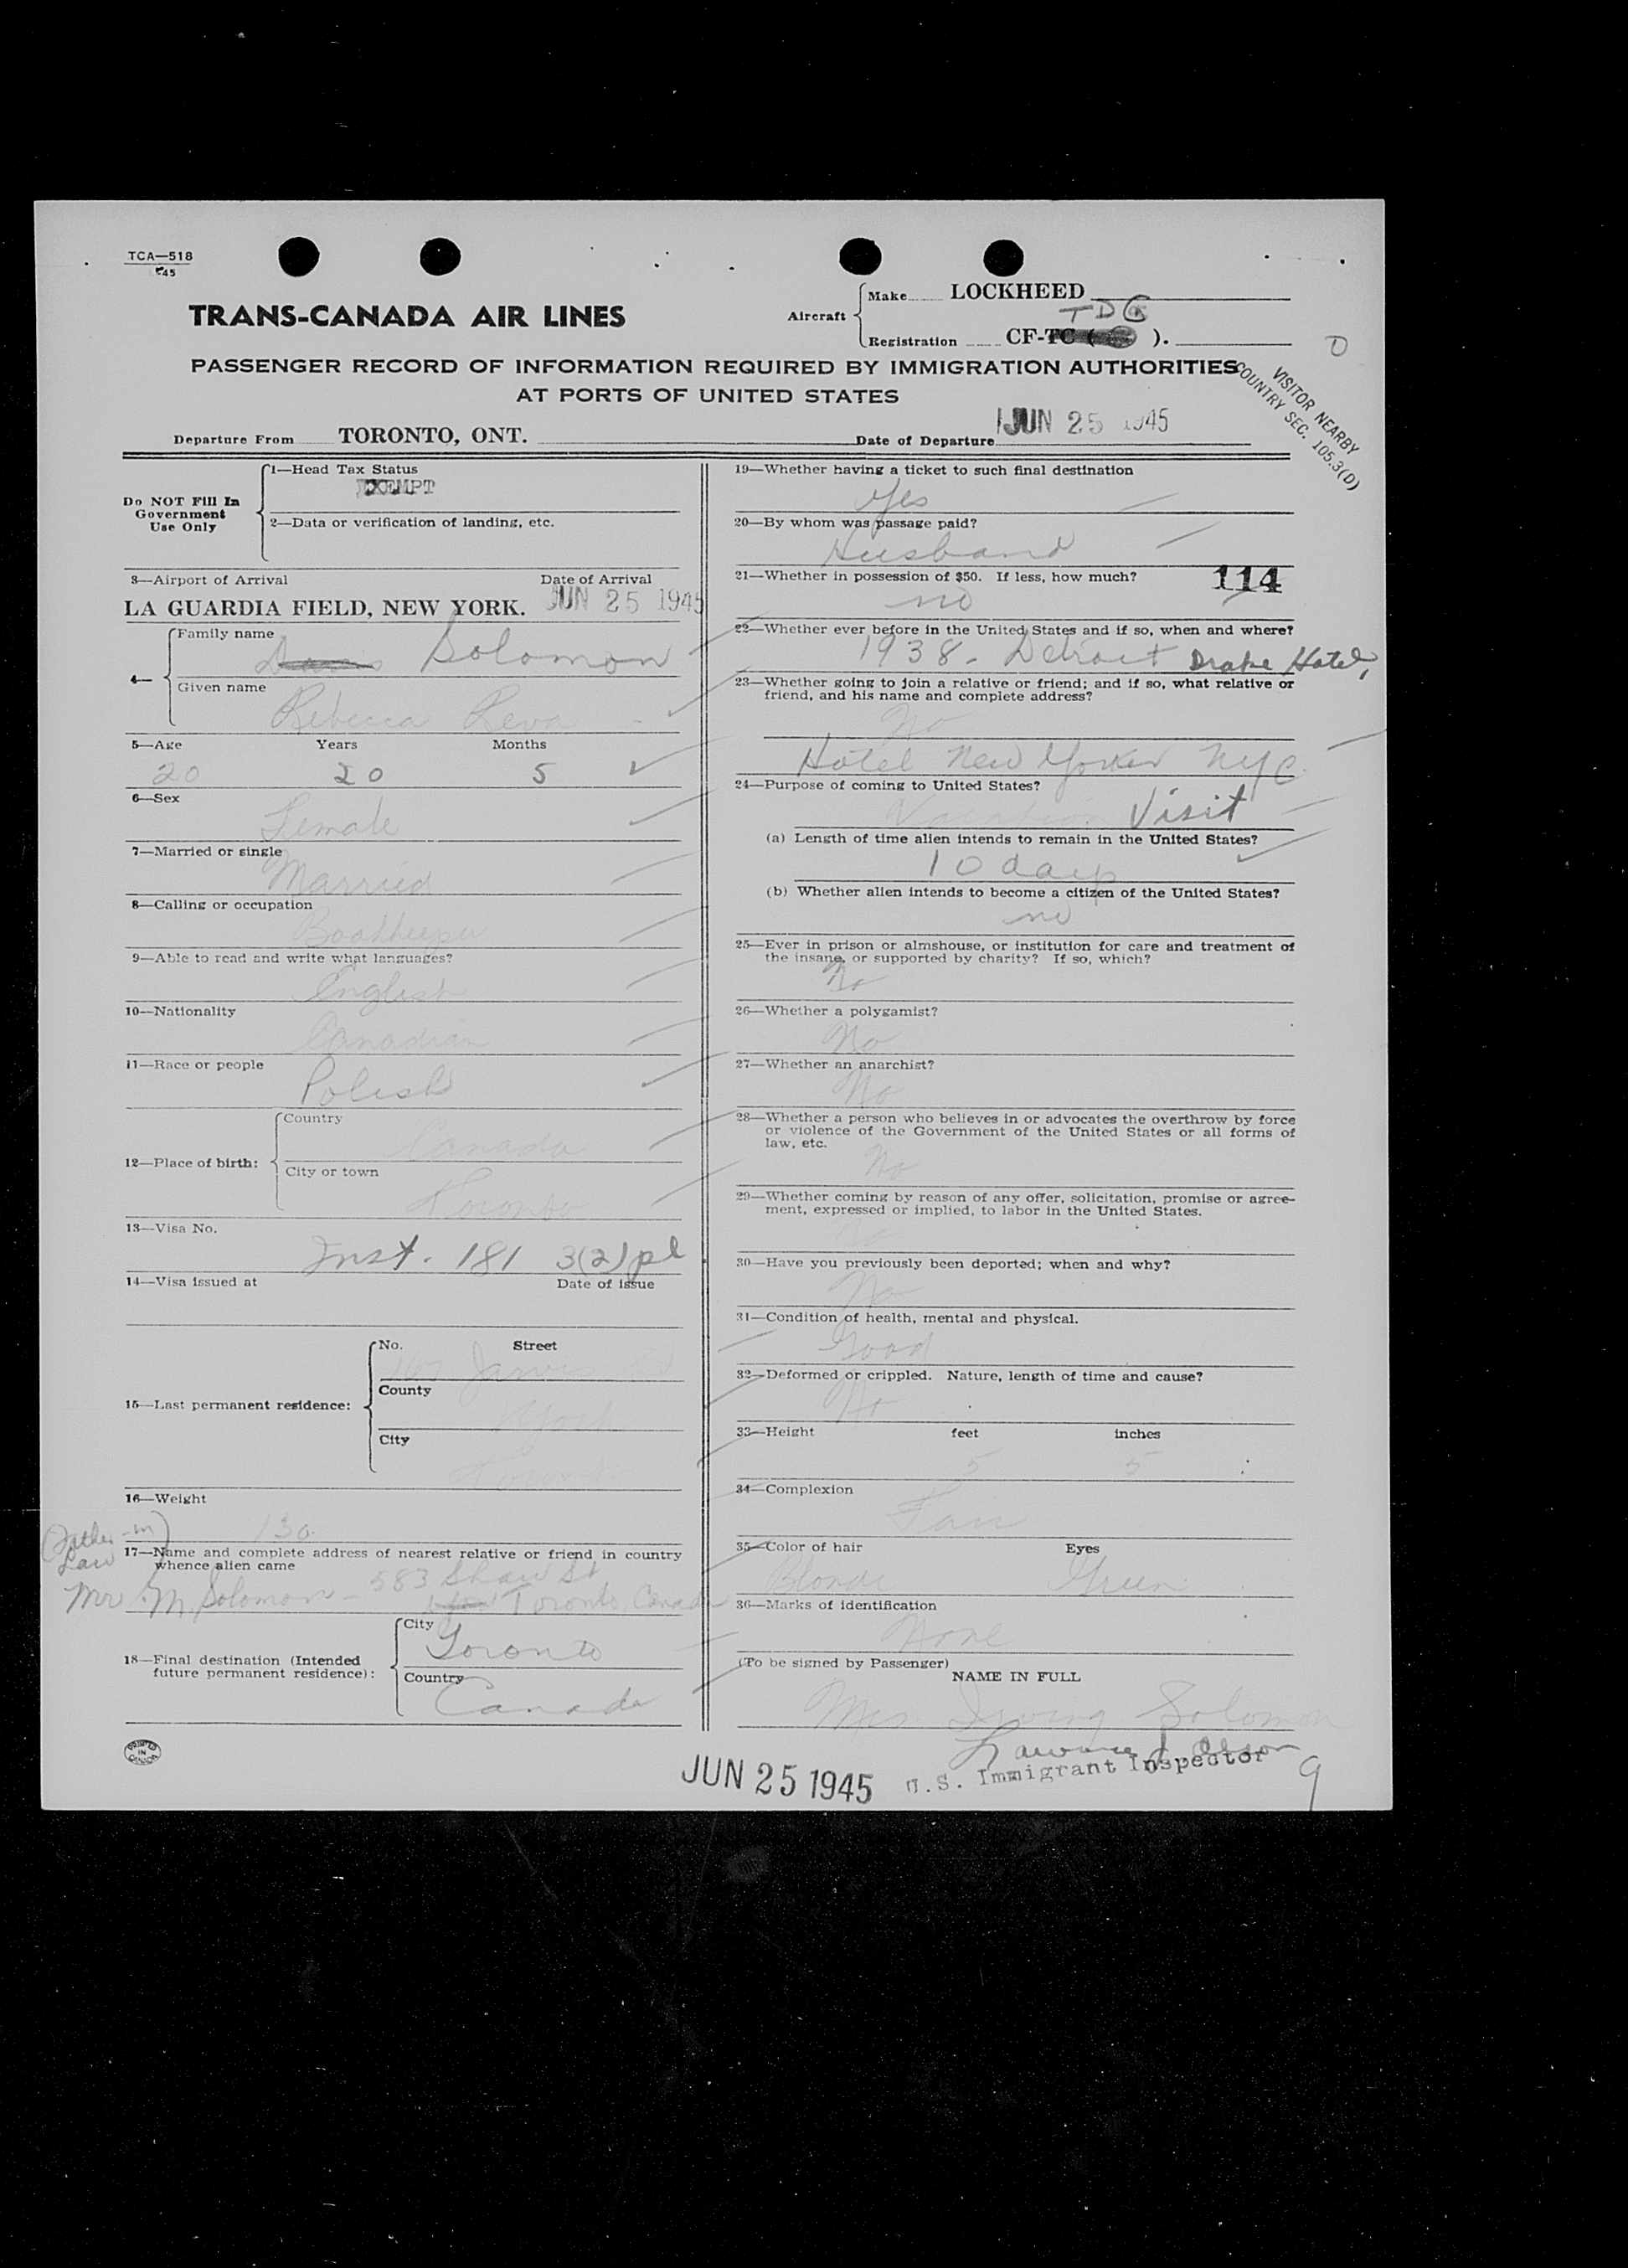 TCA—518
45
TRANS-CANADA AIR LINES
Aircraft
Make LOCKHEED
TDG
Registration CF-TC ( ).
D
PASSENGER RECORD OF INFORMATION REQUIRED BY IMMIGRATION AUTHORITIES
AT PORTS OF UNITED STATES
VISITOR NEARBY
COUNTRY SEC. 105.3(D)
Departure From TORONTO, ONT.
Date of Departure JUN 25 1945
Do NOT Fill In
Government
Use Only
1—Head Tax Status
EXEMPT
2—Data or verification of landing, etc.
3—Airport of Arrival Date of Arrival
LA GUARDIA FIELD, NEW YORK. JUN 25 1945
4—
Family name
Solomon
Given name
Rebecca Reva
5—Age Years Months
20 20 5
6—Sex
Female
7—Married or single
Married
8—Calling or occupation
Bookkeeper
9—Able to read and write what languages?
English
10—Nationality
Canadian
11—Race or people
Polish
12—Place of birth:
Country
Canada
City or town
Toronto
13—Visa No.
Inst. 181 3(2) pl
14—Visa issued at Date of issue
15—Last permanent residence:
No. Street
Jarvis
County
York
City
Toronto
16—Weight
130
(Father-in)
Law
17—Name and complete address of nearest relative or friend in country
whence alien came
583 Shaw St
Mr. M. Solomon - Toronto, Canada
18—Final destination (Intended
future permanent residence):
City
Toronto
Country
Canada
PRINTED
IN
CANADA
19—Whether having a ticket to such final destination
Yes
20—By whom was passage paid?
Husband
21—Whether in possession of $50. If less, how much?
no
114
22—Whether ever before in the United States and if so, when and where?
1938 - Detroit Drake Hotel,
23—Whether going to join a relative or friend; and if so, what relative or
friend, and his name and complete address?
No
Hotel New Yorker NYC.
24—Purpose of coming to United States?
Vacation Visit
(a) Length of time alien intends to remain in the United States?
10 days
(b) Whether alien intends to become a citizen of the United States?
no
25—Ever in prison or almshouse, or institution for care and treatment of
the insane, or supported by charity? If so, which?
No
26—Whether a polygamist?
No
27—Whether an anarchist?
No
28—Whether a person who believes in or advocates the overthrow by force
or violence of the Government of the United States or all forms of
law, etc.
No
29—Whether coming by reason of any offer, solicitation, promise or agree-
ment, expressed or implied, to labor in the United States.
No
30—Have you previously been deported; when and why?
No
31—Condition of health, mental and physical.
Good
32—Deformed or crippled. Nature, length of time and cause?
No
33—Height feet inches
5 5
34—Complexion
Fair
35—Color of hair Eyes
Blonde Green
36—Marks of identification
None
(To be signed by Passenger)
NAME IN FULL
Mrs Irving Solomon
Lawrence J. Olson
U.S. Immigrant Inspector
JUN 25 1945
9